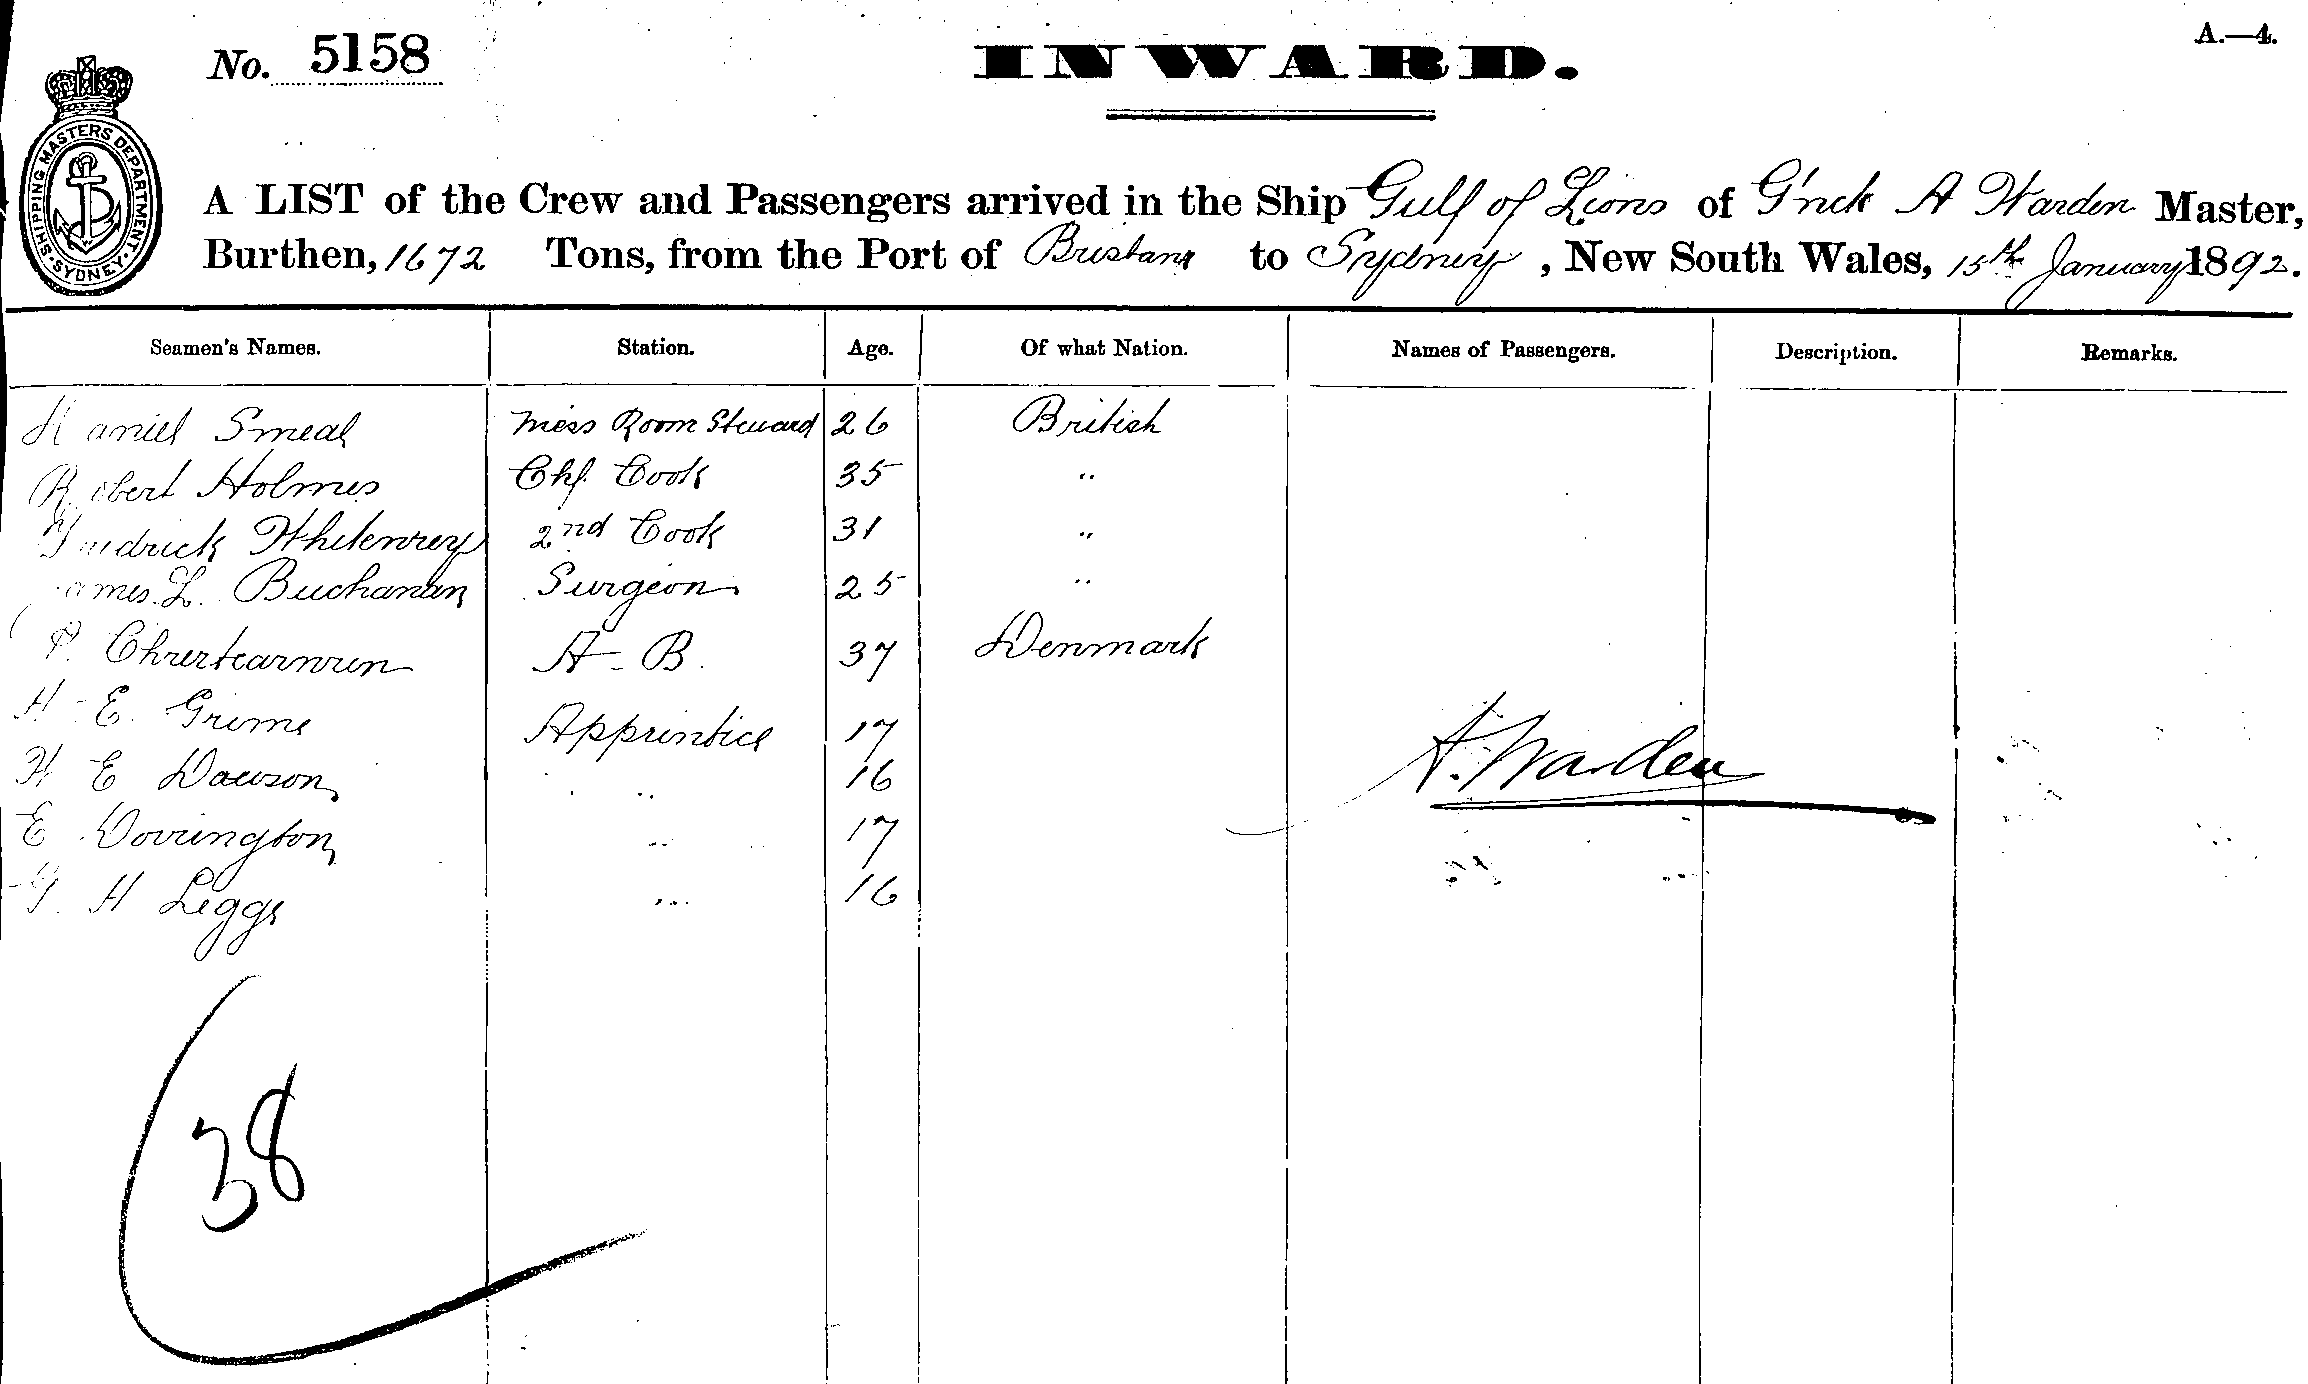 A.—4.
No. 5158
INWARD.
SHIPPING MASTERS DEPARTMENT
SYDNEY
A LIST of the Crew and Passengers arrived in the Ship Gulf of Lions of G'nck A Warden Master,
Burthen, 1672 Tons, from the Port of Brisbane to Sydney, New South Wales, 15th January 1892.
Seamen's Names. Station. Age. Of what Nation. Names of Passengers. Description. Remarks.
Daniel Smeal Mess Room Steward 26 British
Robert Holmes Chf. Cook 35 "
Fredrick 2nd Cook 31 "
James L. Buchanan Surgeon 25 "
P. A-B. 37 Denmark
H E. Grime Apprentice 17
H E Dawson " 16
E Dovrington " 17
H Leggs " 16
A. Warden
38